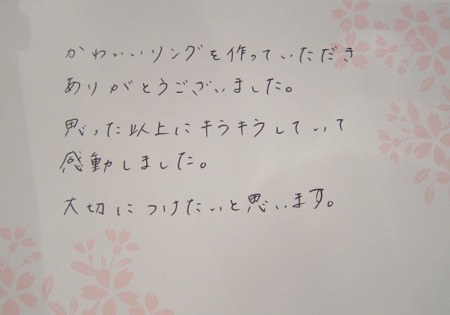 かわいいリングを作っていただき
ありがとうございました。
思った以上にキラキラしていて
感動しました。
大切につけたいと思います。